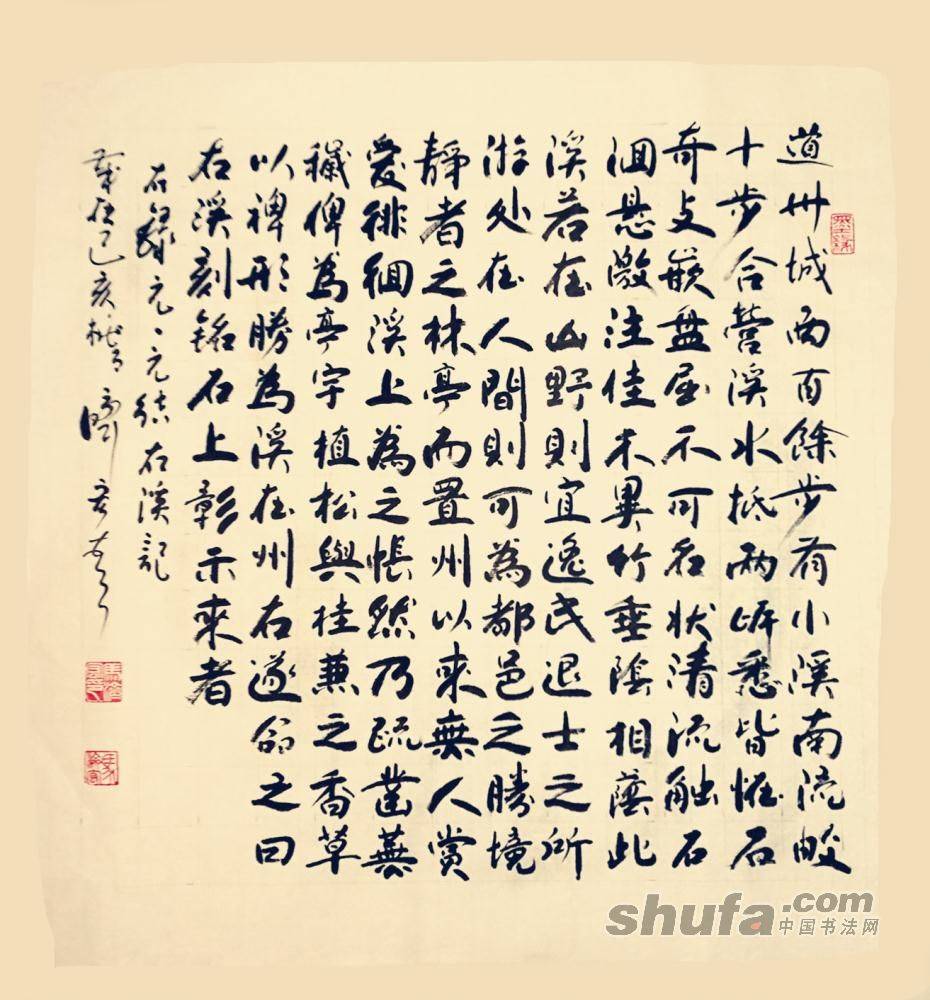 道州城西百餘步有小溪南流數
十步合營溪水抵兩岸悉皆怪石
奇支嵌盤屈不可名狀清流觸石
洄懸激注佳木異竹垂陰相蔭此
溪若在山野則宜逸民退士之所
游处在人間則可為都邑之勝境
靜者之林亭而置州以來無人賞
愛徘徊溪上為之悵然乃疏鑿蕪
穢俾為亭宇植松與桂兼之香草
以裨形勝為溪在州右遂命之曰
右溪刻銘石上彰示來者
右錄元、元結右溪記
歲在己亥
shufa.com
中国书法网